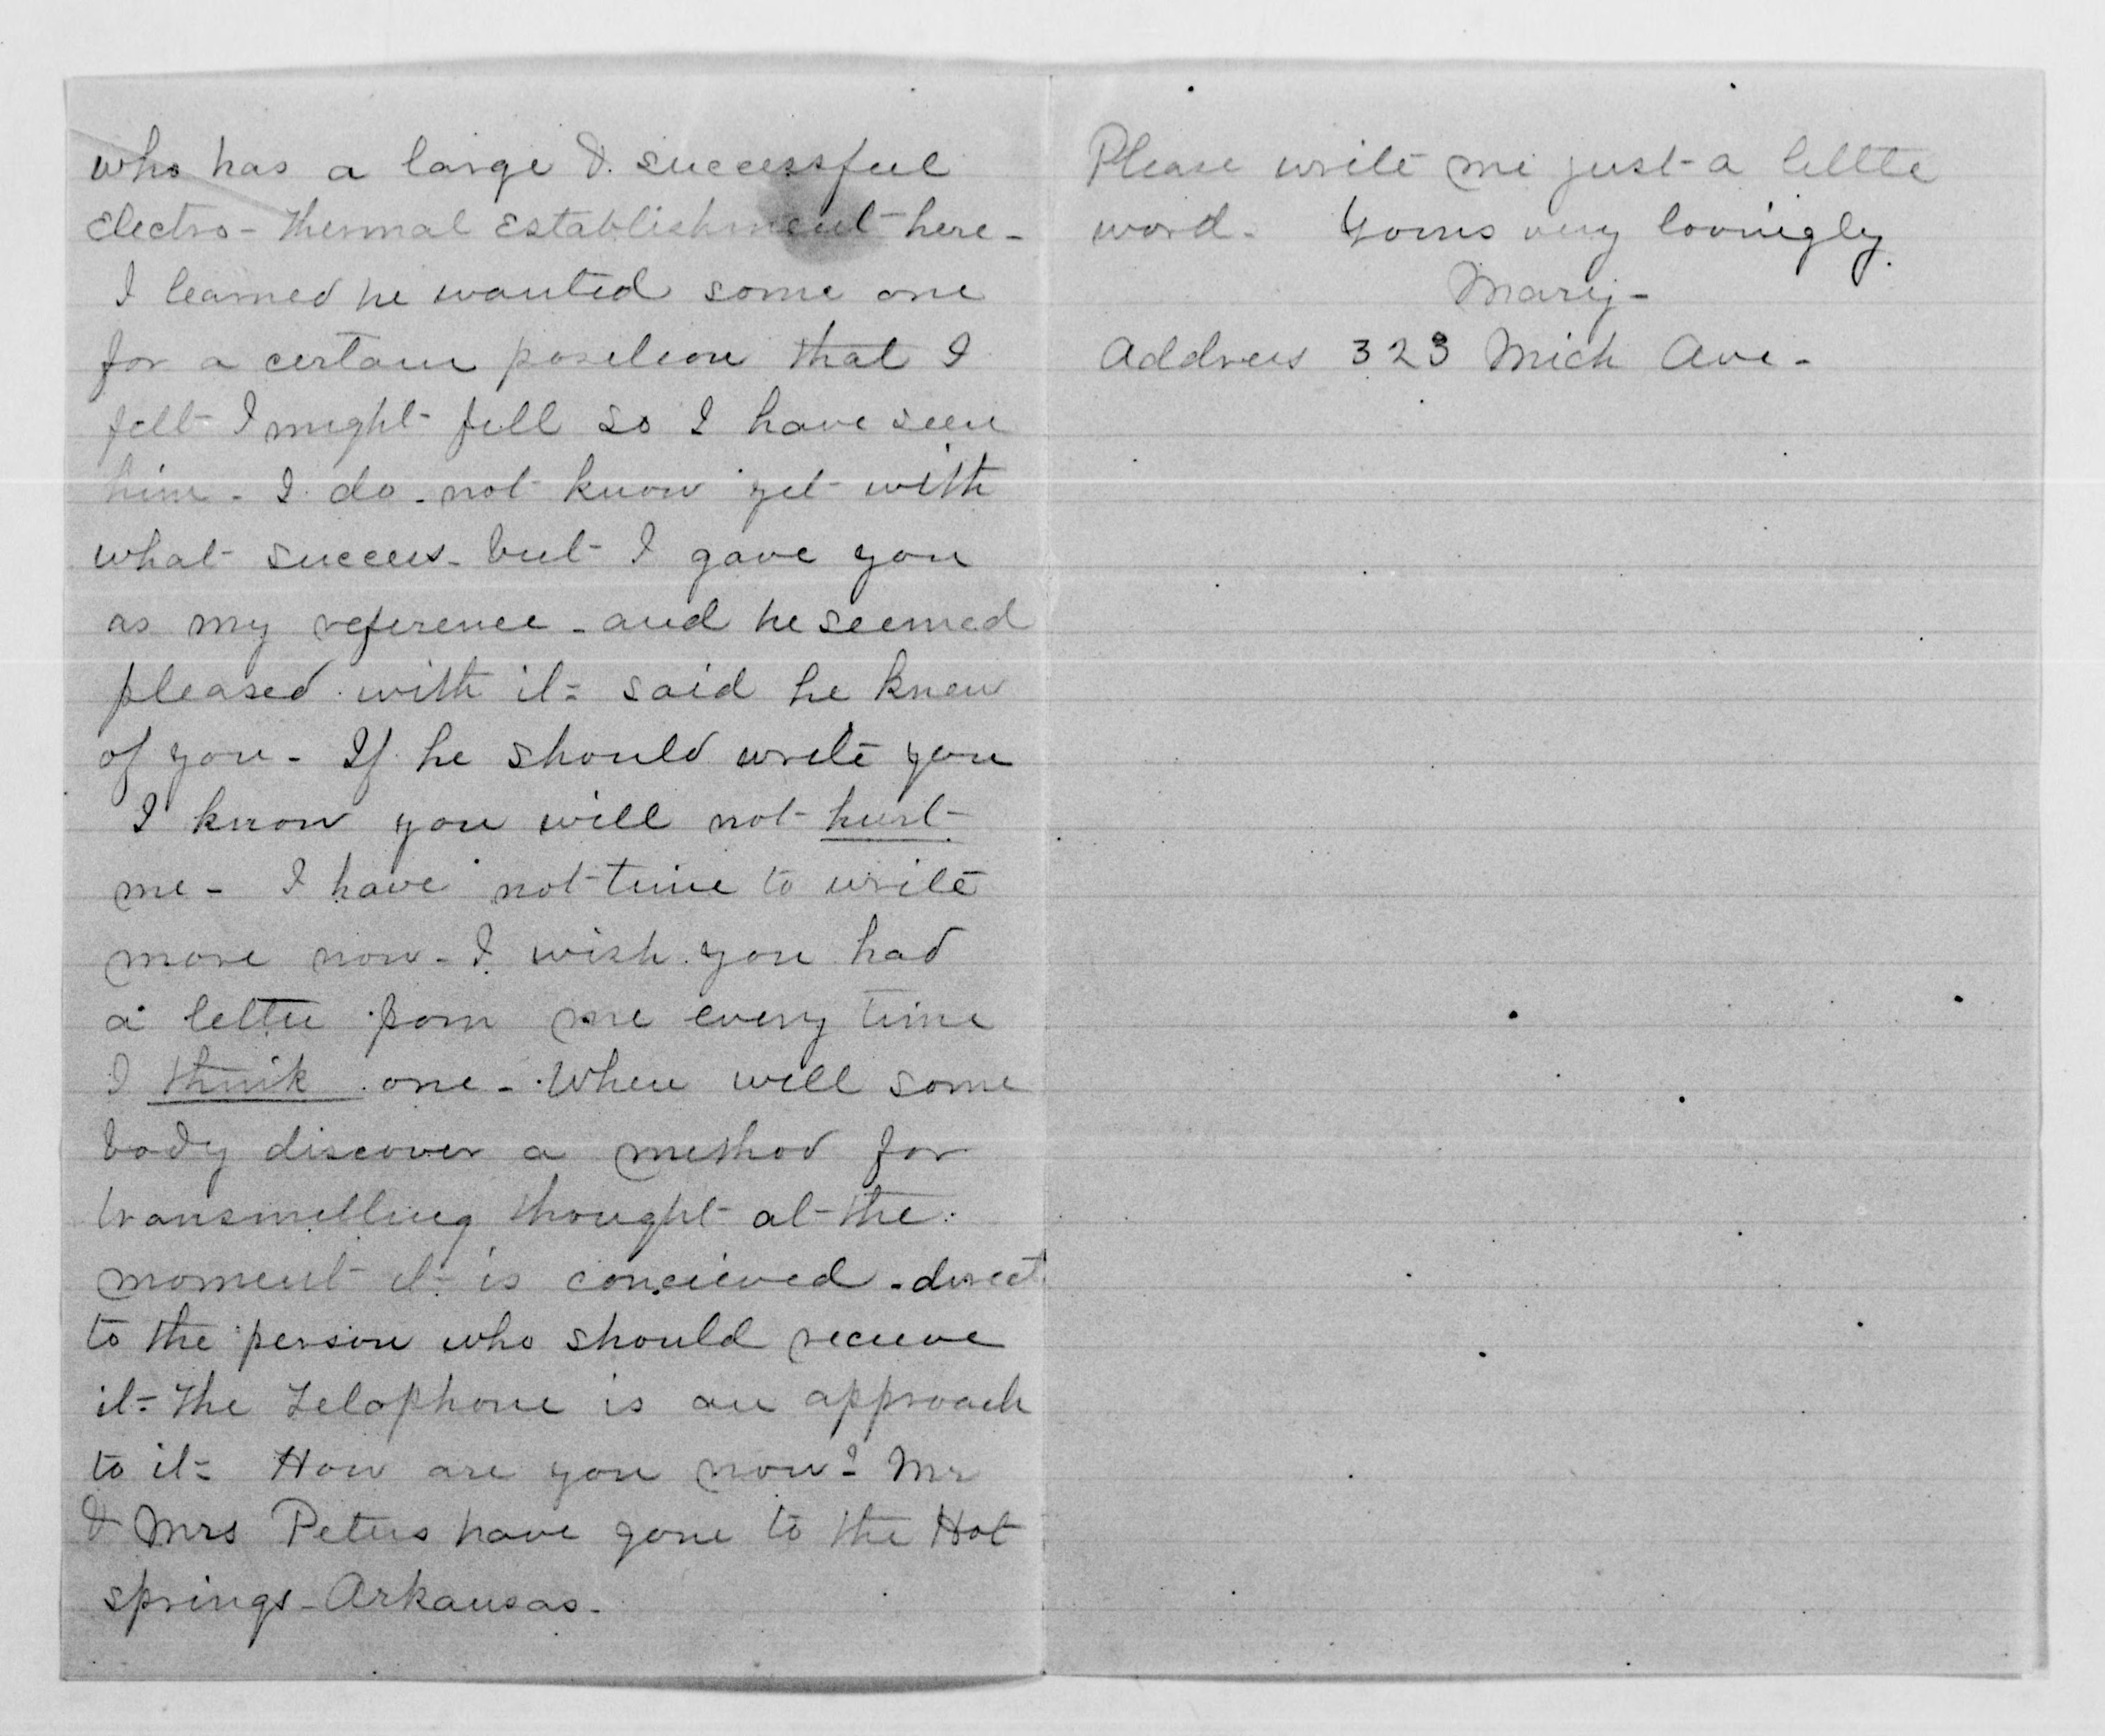 who has a large & successful
Electro-Thermal Establishment here-
I learned he wanted some one
for a certain position that I
felt I might fill so I have seen
him - I do not know yet with
what success - but I gave you
as my reference - and he seemed
pleased with it - said he knew
of you - If he should write you
I know you will not hurt
me - I have not time to write
more now - I wish you had
a letter from me every time
I think one - When will some
body discover a method for
transmitting thought at the
moment it is concieved - direct
to the person who should recieve
it - The Telaphone is an approach
to it - How are you now? Mr
& Mrs Peters have gone to the Hot
springs - Arkansas -
Please write me just a little
word - Yours very lovingly
Mary -
Address 323 Mich Ave -